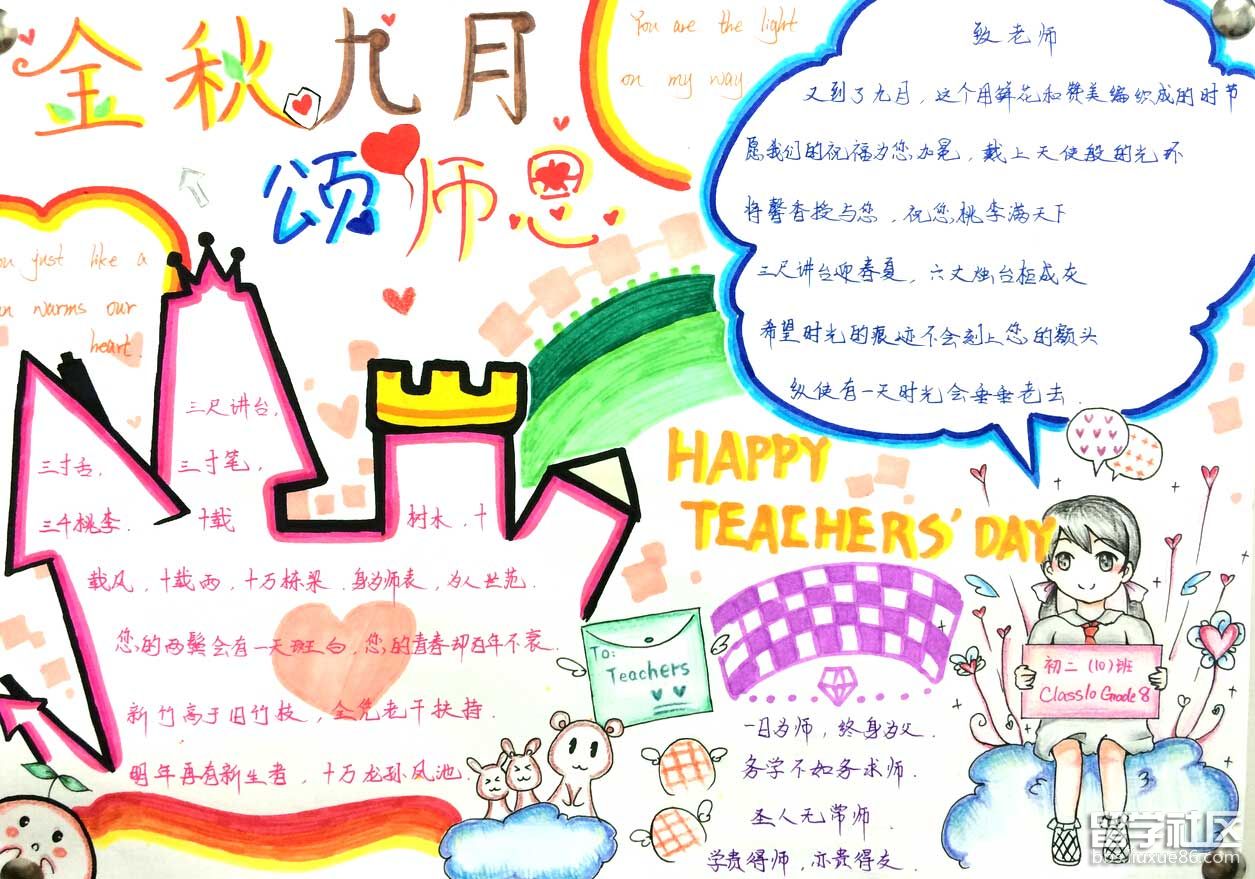 金秋九月
颂师恩
You are the light
on my way
致老师
又到了九月，这个用鲜花和赞美编织成的时节
愿我们的祝福为您加冕，戴上天使般的光环
将馨香授与您，祝您桃李满天下
三尺讲台迎春夏，六丈烛台柜成灰
希望时光的痕迹不会刻上您的额头
纵使有一天时光会垂垂老去.
ou just like a
warms our
heart.
三尺讲台,
三寸舌, 三寸笔,
三千桃李. 十载 树木,十
载风,十载雨,十万栋梁.身为师表,为人世范.
您的两鬓会有一天斑白,您的青春却百年不衰.
新竹高于旧竹枝,全凭老干扶持.
明年再有新生者,十万龙孙凤池.
HAPPY
TEACHERS' DAY
To:
Teachers
初二(10)班
Class10 Grade8
一日为师,终身为父.
务学不如务求师.
圣人无常师.
学贵得师,亦贵得友.
留学社区
bbs.liuxue86.com